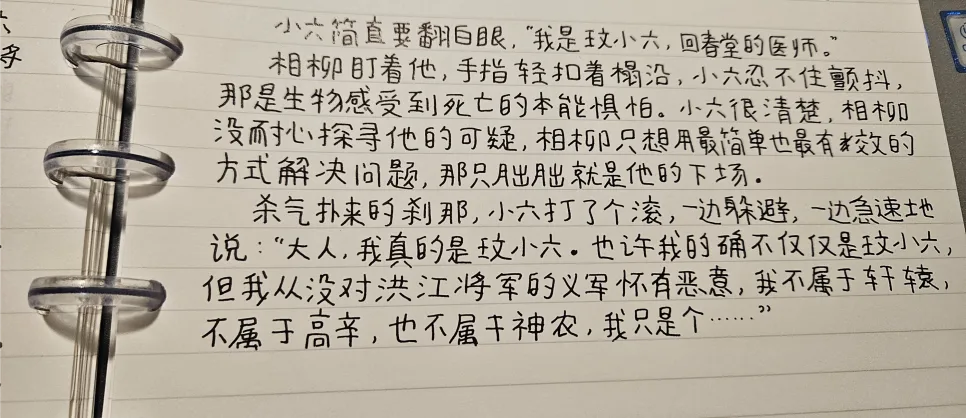 小六简直要翻白眼，“我是玟小六，回春堂的医师。”
相柳盯着他，手指轻扣着榻沿，小六忍不住颤抖，
那是生物感受到死亡的本能惧怕。小六很清楚，相柳
没耐心探寻他的可疑，相柳只想用最简单也最有效的
方式解决问题，那只朏朏就是他的下场。
杀气扑来的刹那，小六打了个滚，一边躲避，一边急速地
说：“大人，我真的是玟小六。也许我的确不仅仅是玟小六，
但我从没对洪江将军的义军怀有恶意，我不属于轩辕，
不属于高辛，也不属于神农，我只是个……”